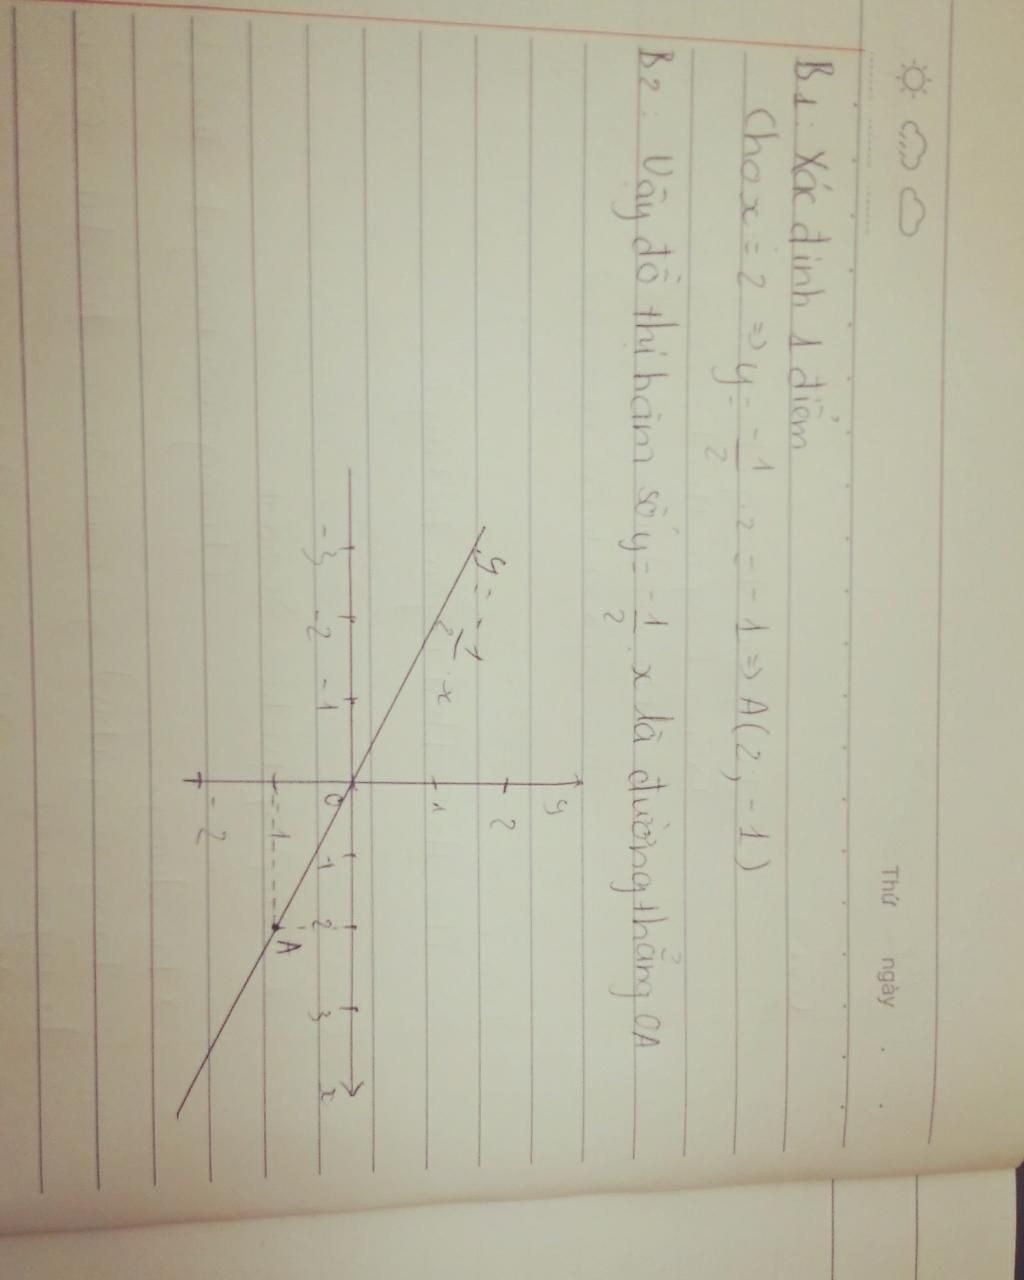 Thứ ngày
B1: Xác định 1 điểm
Cho x = 2 => y = -1/2 . 2 = -1 => A(2, -1)
B2: Vậy đồ thị hàm số y = -1/2 x là đường thẳng OA
y
2
y = -1/2 . x
1
-3 -2 -1 0 1 2 3 x
-1 A
-2